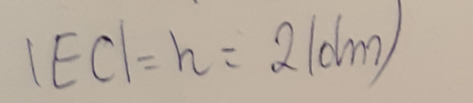 |EC| = h = 2(dm)